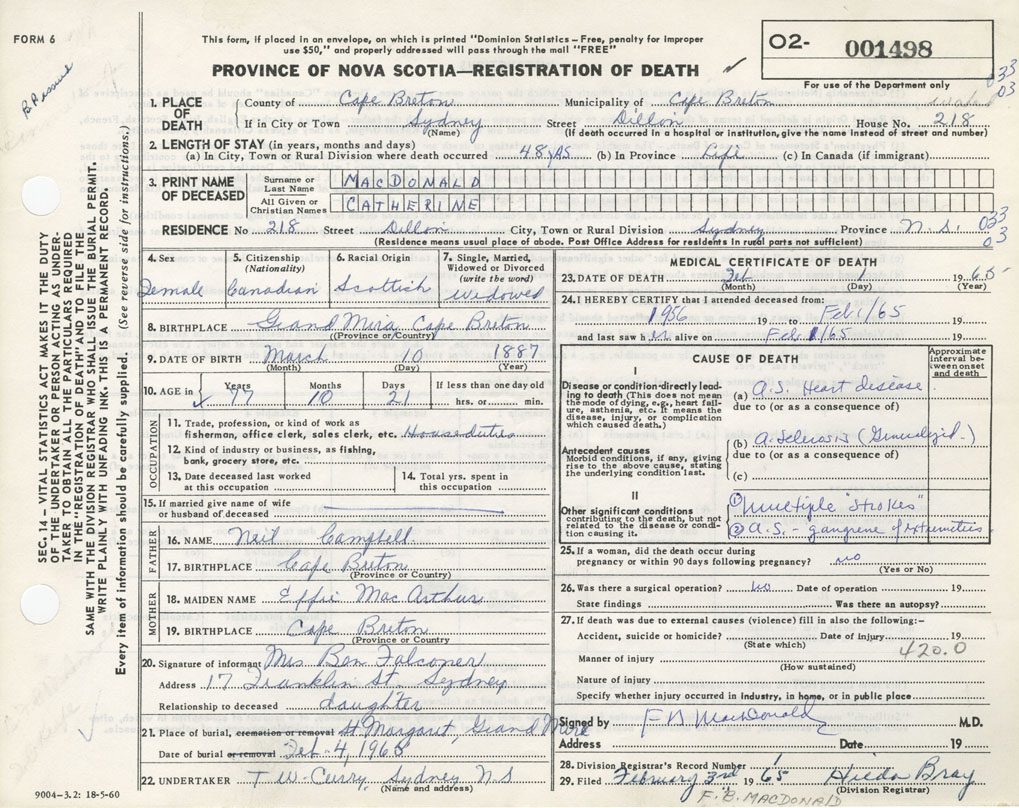 FORM 6
This form, if placed in an envelope, on which is printed "Dominion Statistics – Free, penalty for improper
use $50," and properly addressed will pass through the mail "FREE"
PROVINCE OF NOVA SCOTIA—REGISTRATION OF DEATH
O2- 001498
For use of the Department only
033
03
1. PLACE OF DEATH
County of Cape Breton Municipality of Cape Breton
If in City or Town Sydney Street Dillon House No. 218
(Name) (If death occurred in a hospital or institution, give the name instead of street and number)
2. LENGTH OF STAY (in years, months and days)
(a) In City, Town or Rural Division where death occurred 48 (b) In Province Life (c) In Canada (if immigrant)
3. PRINT NAME OF DECEASED
Surname or Last Name MACDONALD
All Given or Christian Names CATHERINE
RESIDENCE No 218 Street Dillon City, Town or Rural Division Sydney Province N.S.
033
03
(Residence means usual place of abode. Post Office Address for residents in rural parts not sufficient)
4. Sex Female
5. Citizenship (Nationality) Canadian
6. Racial Origin Scottish
7. Single, Married, Widowed or Divorced (write the word) Widowed
8. BIRTHPLACE Grand Mira Cape Breton
(Province or Country)
9. DATE OF BIRTH March 10 1887
(Month) (Day) (Year)
10. AGE in Years 77 Months 10 Days 21 If less than one day old hrs. or min.
OCCUPATION
11. Trade, profession, or kind of work as
fisherman, office clerk, sales clerk, etc. Houseduties
12. Kind of industry or business, as fishing,
bank, grocery store, etc.
13. Date deceased last worked
at this occupation
14. Total yrs. spent in
this occupation
15. If married give name of wife
or husband of deceased
FATHER
16. NAME Neil Campbell
17. BIRTHPLACE Cape Breton
(Province or Country)
MOTHER
18. MAIDEN NAME Effie Mac Arthur
19. BIRTHPLACE Cape Breton
(Province or Country
20. Signature of informant Mrs. Ben Falconer
Address 17 Franklin St. Sydney
Relationship to deceased daughter
21. Place of burial, cremation or removal St Margaret, Grand Mira
Date of burial or removal Feb-4, 1965
22. UNDERTAKER T W Curry Sydney N S
(Name and address)
9004–3.2: 18-5-60
MEDICAL CERTIFICATE OF DEATH
23. DATE OF DEATH Feb 1 1965
(Month) (Day) (Year)
24. I HEREBY CERTIFY that I attended deceased from:
1956 19 to Feb 1/65 19
and last saw h er alive on Feb 1/65 19
CAUSE OF DEATH
Approximate interval between onset and death
I
Disease or condition directly leading to death (This does not
mean the mode of dying, e.g., heart failure, asthenia, etc. It means the
disease, injury, or complication
which caused death.)
(a) A.S. Heart disease
due to (or as a consequence of)
Antecedent causes
Morbid conditions, if any, giving
rise to the above cause, stating
the underlying condition last.
(b) A. Sclerosis (Generalized.)
due to (or as a consequence of)
(c)
II
Other significant conditions
contributing to the death, but not
related to the disease or condition causing it.
① Multiple "Strokes"
② A.S. - gangrene of extremities
25. If a woman, did the death occur during
pregnancy or within 90 days following pregnancy? no
(Yes or No)
26. Was there a surgical operation? no Date of operation 19
State findings Was there an autopsy?
27. If death was due to external causes (violence) fill in also the following:–
Accident, suicide or homicide? Date of injury 19
(State which)
420.0
Manner of injury
(How sustained)
Nature of injury
Specify whether injury occurred in industry, in home, or in public place
Signed by F B MacDonald M.D.
Address Date 19
28. Division Registrar's Record Number 1
29. Filed February 3rd 1965 Hilda Bray
(Division Registrar)
F. B. MACDONALD
SEC. 14 – VITAL STATISTICS ACT MAKES IT THE DUTY
OF THE UNDERTAKER OR PERSON ACTING AS UNDER-
TAKER TO OBTAIN ALL THE PARTICULARS REQUIRED
IN THE "REGISTRATION OF DEATH" AND TO FILE THE
SAME WITH THE DIVISION REGISTRAR WHO SHALL ISSUE THE BURIAL PERMIT.
WRITE PLAINLY WITH UNFADING INK. THIS IS A PERMANENT RECORD.
Every item of information should be carefully supplied. (See reverse side for instructions.)